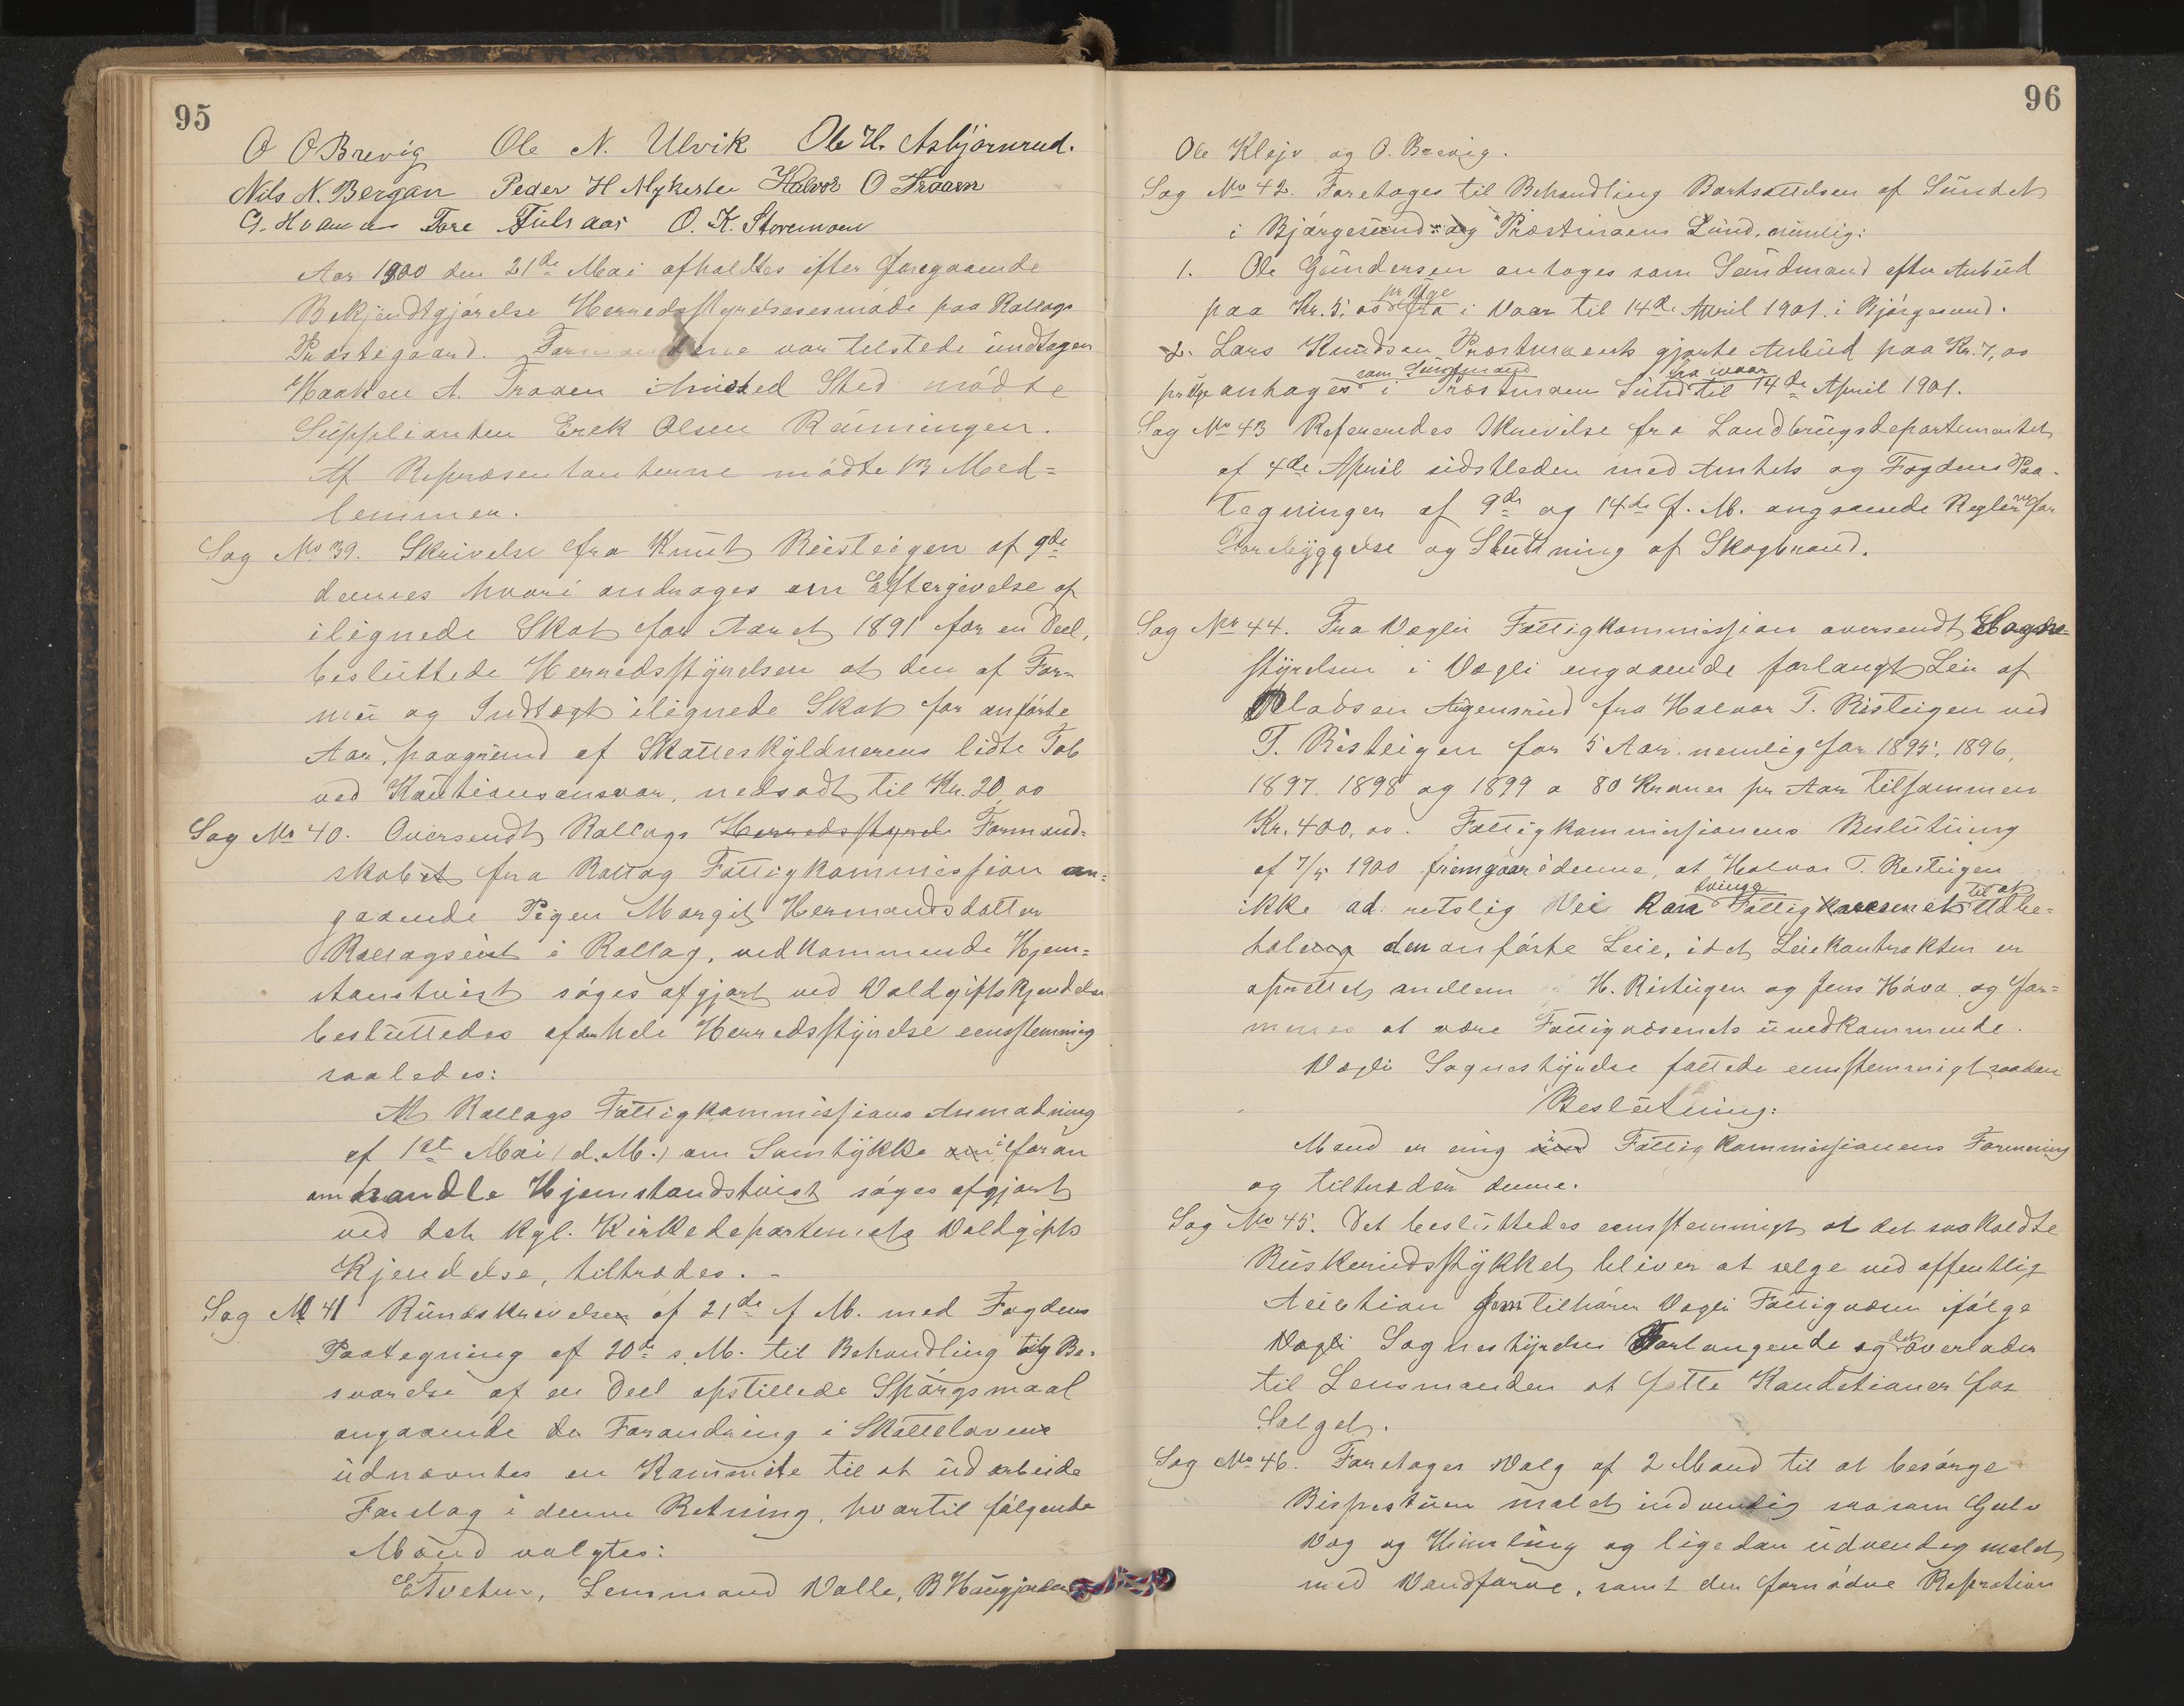 95
O O Brevig Ole N. Ulvik Ole H. Asbjørnrud.
Nils N. Bergan Peder H Mykestu Halvor O Traaen
G. Hvammen Tore Fulsaas O. K. Storemoen
Aar 1900 den 21de Mai afholdtes efter foregaaende
Bekjendtgjørelse Herredsstyrelsesmøde paa Rollags
Præstegaard. Formændene var tilstede undtagen
Haaken A. Traaen i hvis Sted mødte
Supplianten Erek Olsen Rønningen.
Af Repræsentanterne mødte 13 Med-
lemmer.
Sag No 39. Skrivelse fra Knut Risteigen af 9de
dennes hvori andrages om Eftergivelse af
ilignede Skat for Aaret 1891 for en Deel,
besluttede Herredsstyrelsen at den af For-
mue og Indtægt ilignede Skat for anførte
Aar, paagrund af Skatteskyldnerens lidte Tab
ved Kautionsansvar, nedsadt til Kr. 20,00
Sag No 40. Oversendt Rollags Herredsstyrel Formand-
skabet fra Rollag Fattigkommission an-
gaaende Pigen Margit Hermandsdatter
Rollagseiet i Rollag, vedkommende Hjem-
stanstvist søges afgjort ved Voldgiftskjendelse
besluttedes af den hele Herredsstyrelse eensstemmig
saaledes:
At Rollags Fattigkommissions Anmodning
af 1ste Mai (d. M.) om Samtykke i foran
omhandle Hjemstandstvist søges afgjort
ved det kgl. Kirkedepartements Voldgifts
Kjendelse, tiltrædes. -
Sag No 41 Rundskrivelsen af 21de f M. med Fogdens
Paategning af 20de s. M. til Behandling og Be-
svarelse af en Deel opstillede Spørgsmaal
angaaende de Forandring i Skattelovene
udnævntes en Kommite til at udarbeide
Forslag i denne Retning, hvortil følgende
Mænd valgtes:
E Tveten, Lensmand Valle, B Haugjorden
96
Ole Klejv og O. Brevig.
Sag No 42. Foretages til Behandling Bortsættelsen af Sundet
i Bjørgesund og Præstmoens Sund. nemlig:
1. Ole Gundersen antages som Sundmand efter Anbud
pr Uge
paa Kr. 5,00 fra i Vaar til 14de April 1901. i Bjørgesund.
2. Lars Knudsen Præstmoens gjorte Anbud paa Kr. 7,00
som Sundmand fra ivaar
pr Uge antages i Præstmoen Sund til 14de April 1901.
Sag No 43 Refereredes Skrivelse fra Landbrugsdepartementet
af 4de April sidstleden med Amtets og Fogdens Paa-
tegninger af 9de og 14de f. M. angaaende Reglerne for
Forebyggelse og Slukning af Skogbrand.
Sag No 44. Fra Vegli Fattigkommission oversendt Sogne-
styrelsen i Vegli angaaende forlangt Leie af
Pladsen Aagensrud fra Halvor T. Risteigen ved
T. Risteigen for 5 Aar nemlig for 1895, 1896,
1897. 1898 og 1899 a 80 Kroner pr Aar tilsammen
Kr. 400,00. Fattigkommissionens Beslutning
af 7/5 1900 fremgaar denne, at Halvor T. Risteigen
tvinge til at
ikke ad retslig Vei kan Fattigvæsenet udbe-
tale den anførte Leie, idet Leiekontrakten er
oprettet mellem H. Risteigen og Jens Hova og for-
menes at være Fattigvæsenets uvedkommende.
Vegli Sognestyrelse fattede eensstemmigt saadan
Beslutning:
Mand er enig i Fattigkommissionens Formening
og tiltræder denne.
Sag No 45. Det besluttedes eensstemmigt at det saakaldte
Ruskerudsstykket bliver at sælge ved offentlig
Auction som tilhører Vegli Fattigvæsen ifølge
Vegli Sognestyrelses Forlangende og det overlades
til Lensmanden at fatte Konditioner for
Salget.
Sag No 46. Foretages Valg af 2 Mand til at besørge
Bispestuen malet indvendig saasom Gulv
Væg og Himling og ligedan udvendig malet
med Vandfarve, samt den fornødne Repration